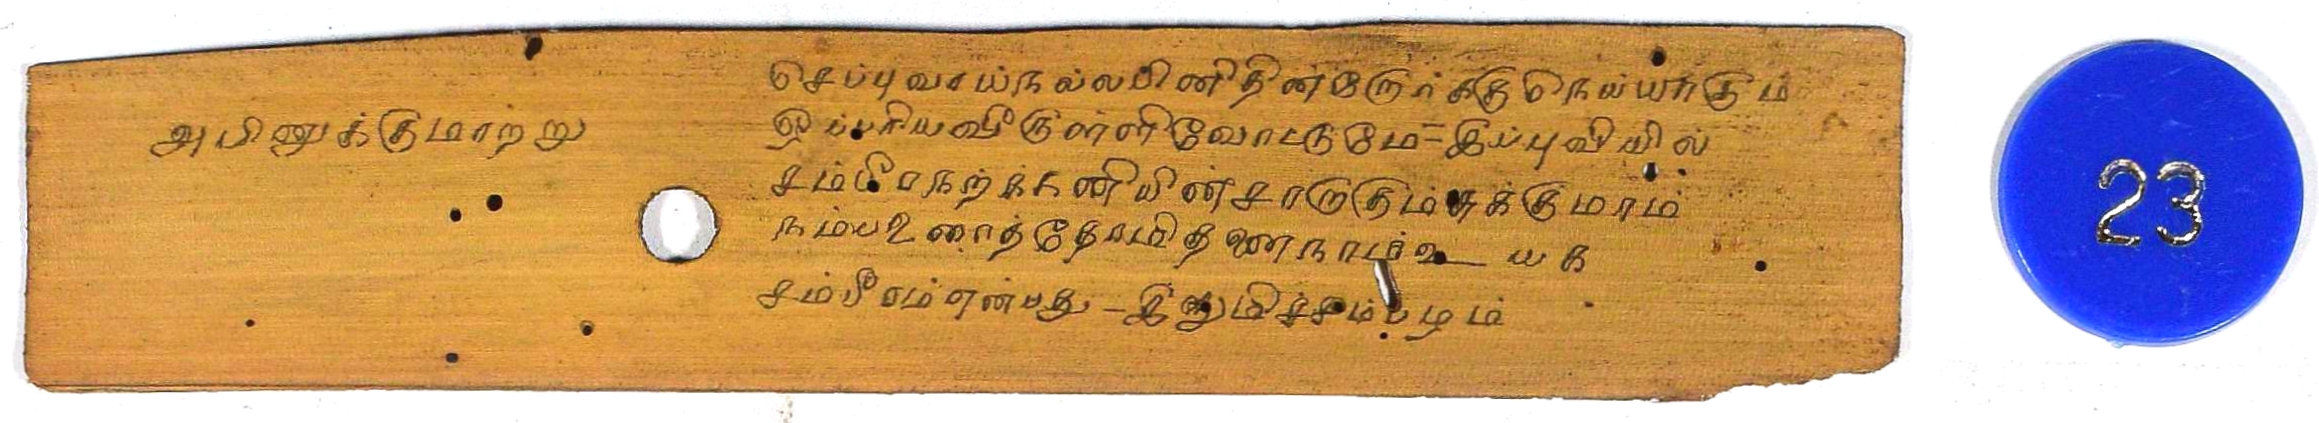 அபினுக்குமாற்று
செப்புவாய்நல்லபினிதின்றோர்க்குநெய்யாகும்
ஒப்பரியவீருள்ளிவோட்டுமே - இப்புவியில்
சம்பீரநற்க்கனியின்சாருகும்சுக்குமாம்
நம்ப
சம்பீரம்என்பது - இலுமிச்சம்பழம்
23